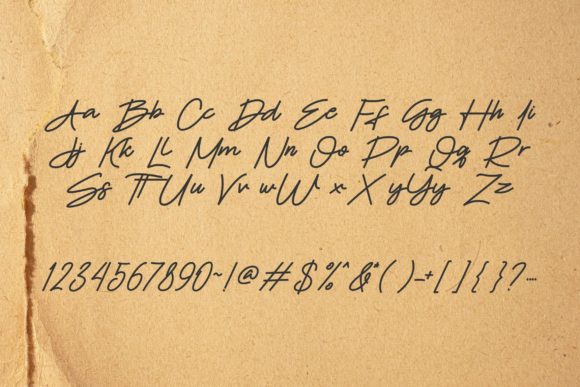 Aa Bb Cc Dd Ee Ff Gg Hh Ii
Jj Kk Ll Mm Nn Oo Pp Qq Rr
Ss Tt Uu Vv wW x X yYy Zz
1234567890~!@#$%^&*()-+[]{}?...